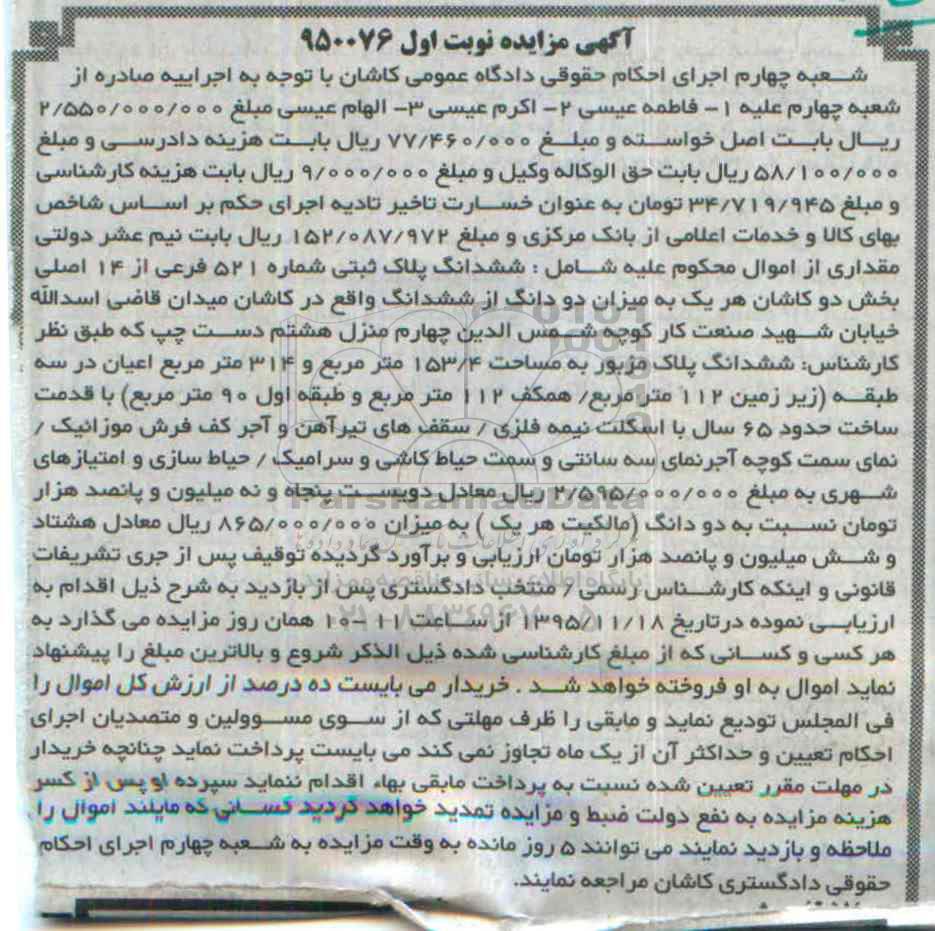 آگهی مزایده نوبت اول ۹۵۰۰۷۶
شعبه چهارم اجرای احکام حقوقی دادگاه عمومی کاشان با توجه به اجراییه صادره از
شعبه چهارم علیه ۱- فاطمه عیسی ۲- اکرم عیسی ۳- الهام عیسی مبلغ ۲/۵۵۰/۰۰۰/۰۰۰
ریال بابت اصل خواسته و مبلغ ۷۷/۴۶۰/۰۰۰ ریال بابت هزینه دادرسی و مبلغ
۵۸/۱۰۰/۰۰۰ ریال بابت حق الوکاله وکیل و مبلغ ۹/۰۰۰/۰۰۰ ریال بابت هزینه کارشناسی
و مبلغ ۳۴/۷۱۹/۹۴۵ تومان به عنوان خسارت تاخیر تادیه اجرای حکم بر اساس شاخص
بهای کالا و خدمات اعلامی از بانک مرکزی و مبلغ ۱۵۲/۰۸۷/۹۷۲ ریال بابت نیم عشر دولتی
مقداری از اموال محکوم علیه شامل : ششدانگ پلاک ثبتی شماره ۵۲۱ فرعی از ۱۴ اصلی
بخش دو کاشان هر یک به میزان دو دانگ از ششدانگ واقع در کاشان میدان قاضی اسدالله
خیابان شهید صنعت کار کوچه شمس الدین چهارم منزل هشتم دست چپ که طبق نظر
کارشناس: ششدانگ پلاک مزبور به مساحت ۱۵۳/۴ متر مربع و ۳۱۴ متر مربع اعیان در سه
طبقه (زیر زمین ۱۱۲ متر مربع/ همکف ۱۱۲ متر مربع و طبقه اول ۹۰ متر مربع) با قدمت
ساخت حدود ۶۵ سال با اسکلت نیمه فلزی / سقف های تیرآهن و آجر کف فرش موزائیک /
نمای سمت کوچه آجرنمای سه سانتی و سمت حیاط کاشی و سرامیک / حیاط سازی و امتیازهای
شهری به مبلغ ۲/۵۹۵/۰۰۰/۰۰۰ ریال معادل دویست پنجاه و نه میلیون و پانصد هزار
تومان نسبت به دو دانگ (مالکیت هر یک ) به میزان ۸۶۵/۰۰۰/۰۰۰ ریال معادل هشتاد
و شش میلیون و پانصد هزار تومان ارزیابی و برآورد گردیده توقیف پس از جری تشریفات
قانونی و اینکه کارشناس رسمی / منتخب دادگستری پس از بازدید به شرح ذیل اقدام به
ارزیابی نموده درتاریخ ۱۳۹۵/۱۱/۱۸ از ساعت ۱۱ -۱۰ همان روز مزایده می گذارد به
هر کسی و کسانی که از مبلغ کارشناسی شده ذیل الذکر شروع و بالاترین مبلغ را پیشنهاد
نماید اموال به او فروخته خواهد شد . خریدار می بایست ده درصد از ارزش کل اموال را
فی المجلس تودیع نماید و مابقی را ظرف مهلتی که از سوی مسوولین و متصدیان اجرای
احکام تعیین و حداکثر آن از یک ماه تجاوز نمی کند می بایست پرداخت نماید چنانچه خریدار
در مهلت مقرر تعیین شده نسبت به پرداخت مابقی بهاء اقدام ننماید سپرده او پس از کسر
هزینه مزایده به نفع دولت ضبط و مزایده تمدید خواهد گردید کسانی که مایلند اموال را
ملاحظه و بازدید نمایند می توانند ۵ روز مانده به وقت مزایده به شعبه چهارم اجرای احکام
حقوقی دادگستری کاشان مراجعه نمایند.
ParsNamadData